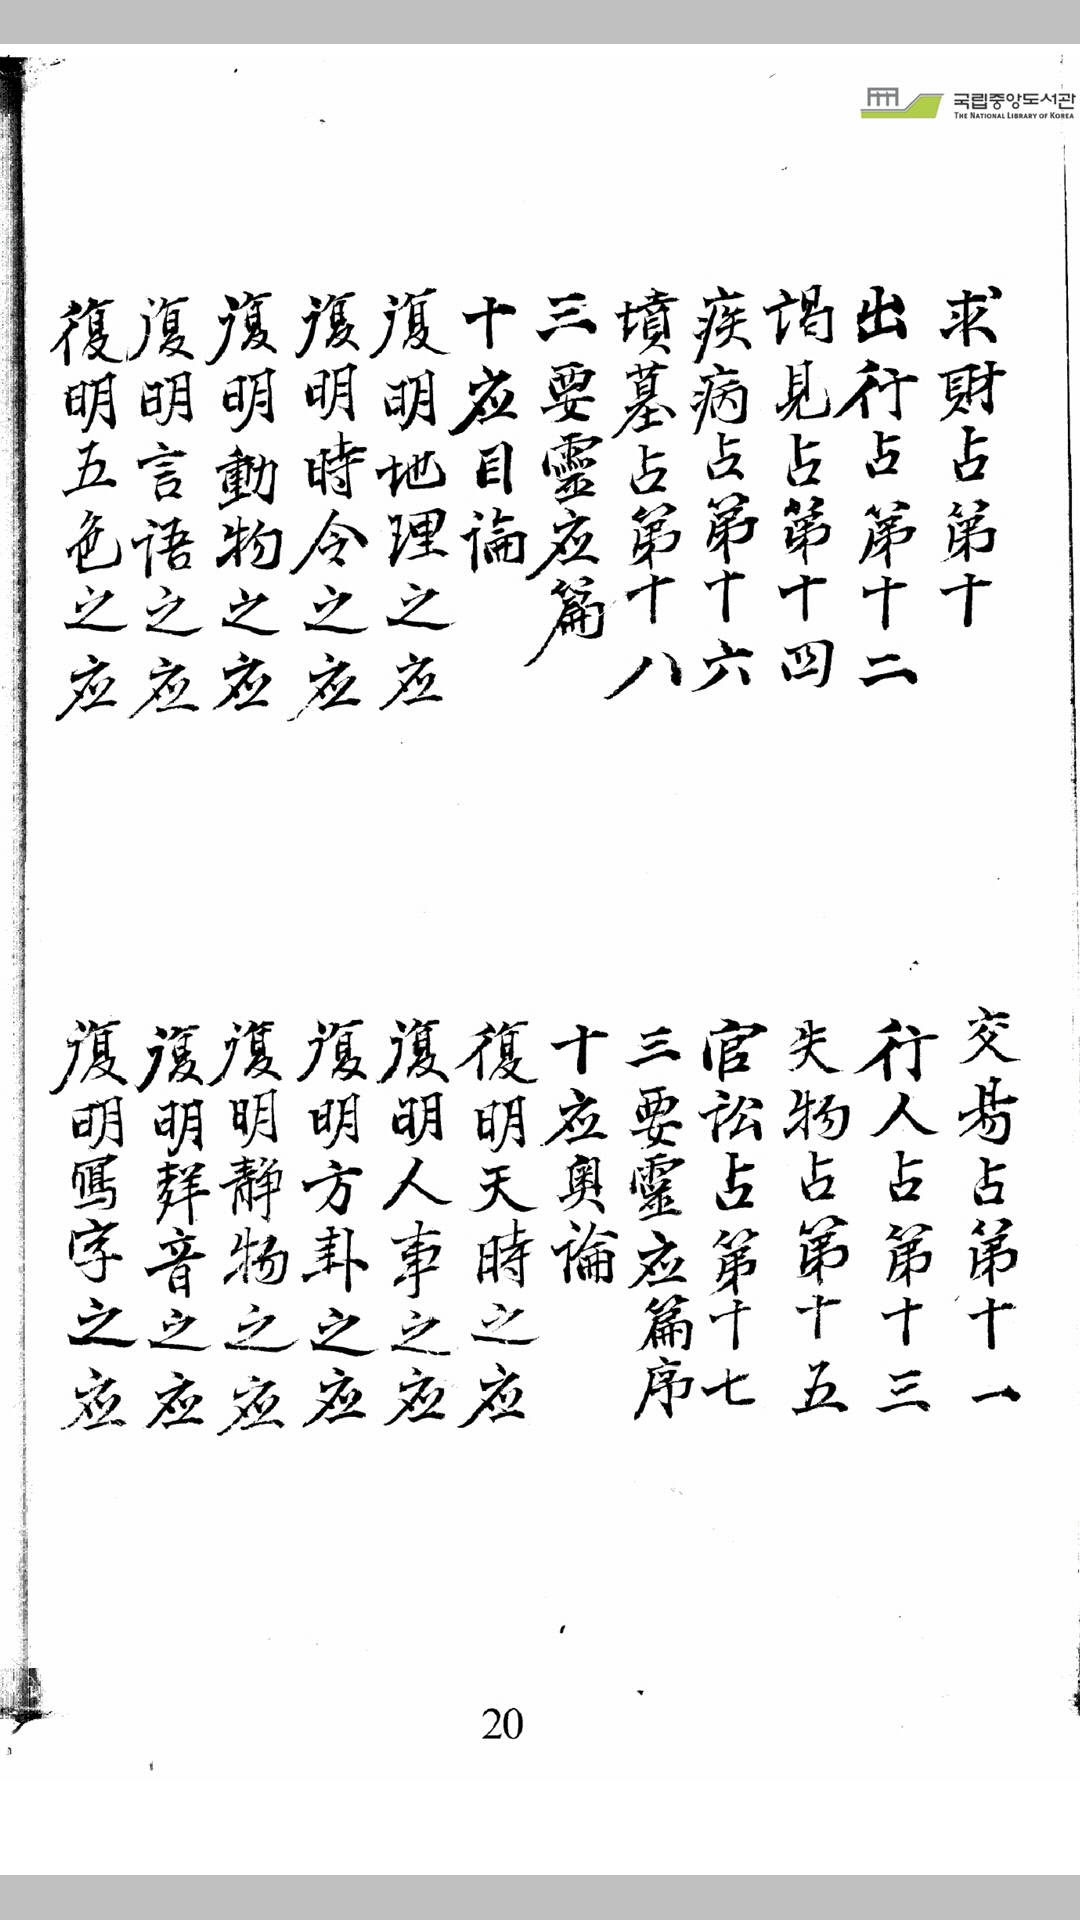 국립중앙도서관
THE NATIONAL LIBRARY OF KOREA
求財占第十
交易占第十一
出行占第十二
行人占第十三
謁見占第十四
失物占第十五
疾病占第十六
官訟占第十七
墳墓占第十八
三要靈应篇序
三要靈应篇
十应奧論
十应目論
復明天時之应
復明地理之应
復明人事之应
復明時令之应
復明方卦之应
復明動物之应
復明静物之应
復明言語之应
復明音之应
復明五色之应
復明寫字之应
20